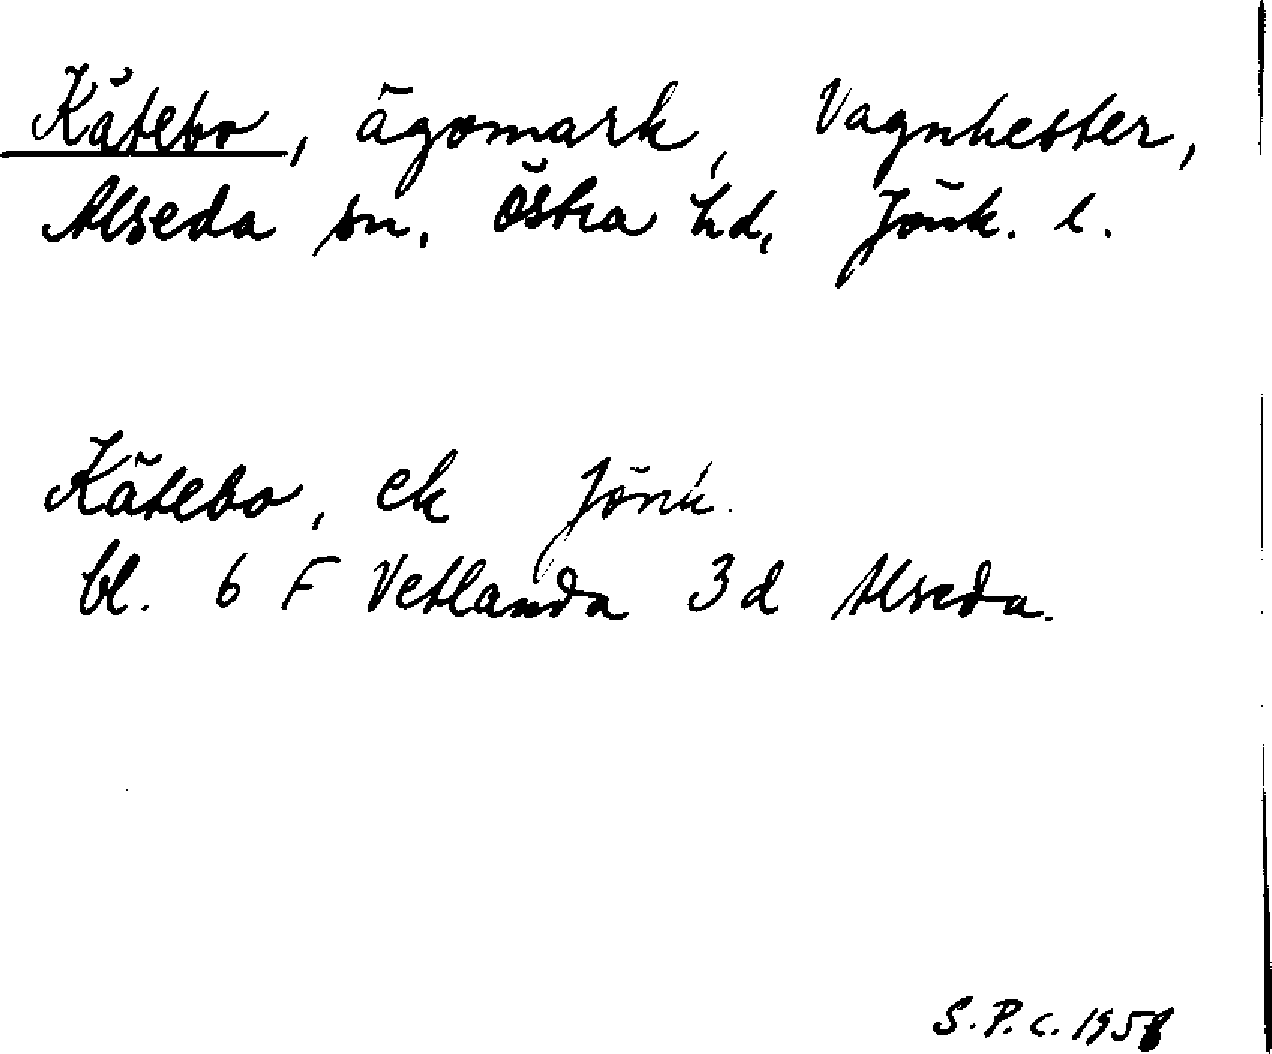 Kätebo, ägomark, Vagnhester,
Alseda sn. Östra hd, Jönk. l.
Kätebo, ek Jönk.
bl. 6 F Vetlanda 3d Alseda.
S.P.c. 1958